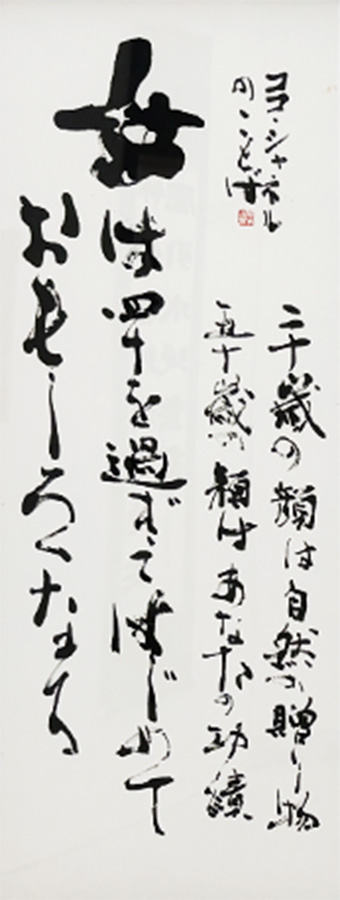 ココ・シャネル
のことば
二十歳の顔は自然の贈り物
五十歳の顔はあなたの功績
女は四十を過ぎてはじめて
おもしろくなる